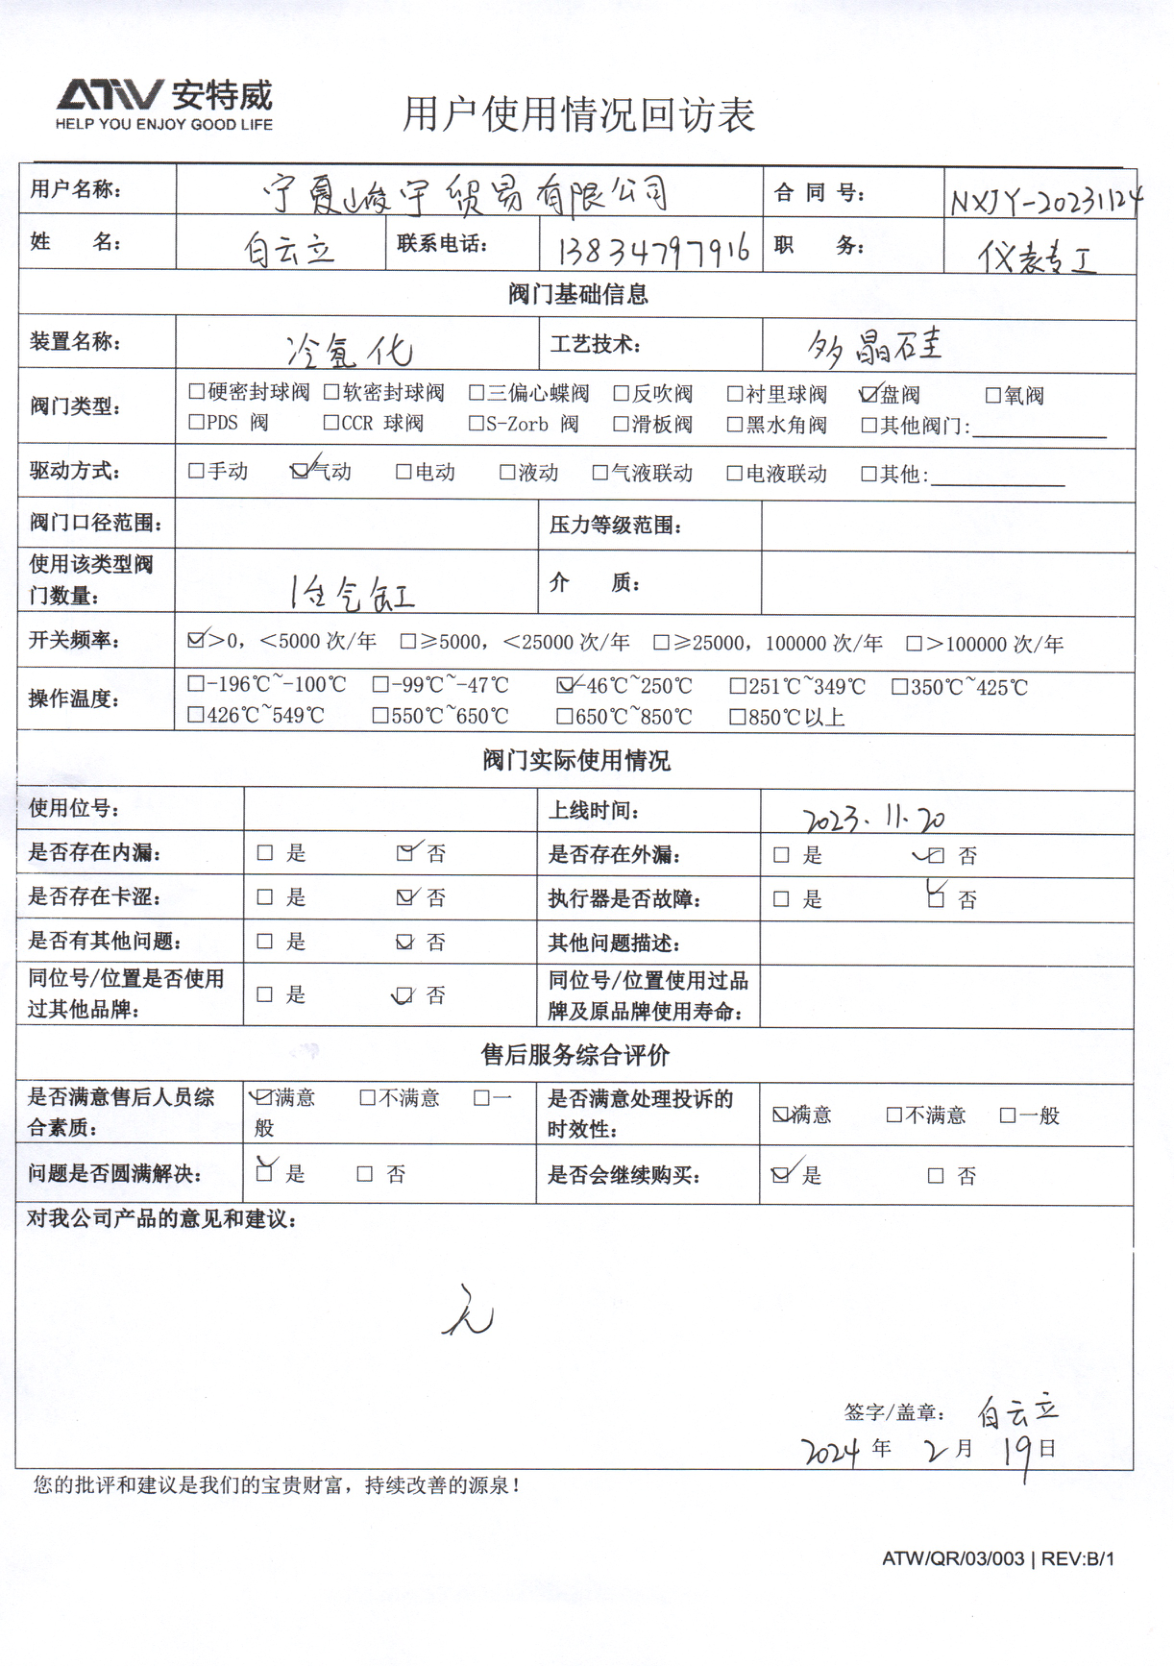 ATW 安特威
HELP YOU ENJOY GOOD LIFE
用户使用情况回访表
用户名称： 宁夏峻宇贸易有限公司 合同号： NXJY-20231124
姓 名： 白云立 联系电话： 13834797916 职 务： 仪表专工
阀门基础信息
装置名称： 冷氢化 工艺技术： 多晶硅
阀门类型： □硬密封球阀 □软密封球阀 □三偏心蝶阀 □反吹阀 □衬里球阀 ☑盘阀 □氧阀
□PDS 阀 □CCR 球阀 □S-Zorb 阀 □滑板阀 □黑水角阀 □其他阀门:
驱动方式： □手动 ☑气动 □电动 □液动 □气液联动 □电液联动 □其他:
阀门口径范围： 压力等级范围：
使用该类型阀
门数量： 1台气缸 介 质：
开关频率： ☑>0，<5000 次/年 □≥5000，<25000 次/年 □≥25000，100000 次/年 □>100000 次/年
操作温度： □-196℃~-100℃ □-99℃~-47℃ ☑-46℃~250℃ □251℃~349℃ □350℃~425℃
□426℃~549℃ □550℃~650℃ □650℃~850℃ □850℃以上
阀门实际使用情况
使用位号： 上线时间： 2023.11.20
是否存在内漏： □ 是 ☑ 否 是否存在外漏： □ 是 ☑ 否
是否存在卡涩： □ 是 ☑ 否 执行器是否故障： □ 是 ☑ 否
是否有其他问题： □ 是 ☑ 否 其他问题描述：
同位号/位置是否使用
过其他品牌： □ 是 ☑ 否 同位号/位置使用过品
牌及原品牌使用寿命：
售后服务综合评价
是否满意售后人员综
合素质： ☑满意 □不满意 □一
般 是否满意处理投诉的
时效性： ☑满意 □不满意 □一般
问题是否圆满解决： ☑ 是 □ 否 是否会继续购买： ☑ 是 □ 否
对我公司产品的意见和建议：
无
签字/盖章： 白云立
2024 年 2 月 19 日
您的批评和建议是我们的宝贵财富，持续改善的源泉！
ATW/QR/03/003 | REV:B/1